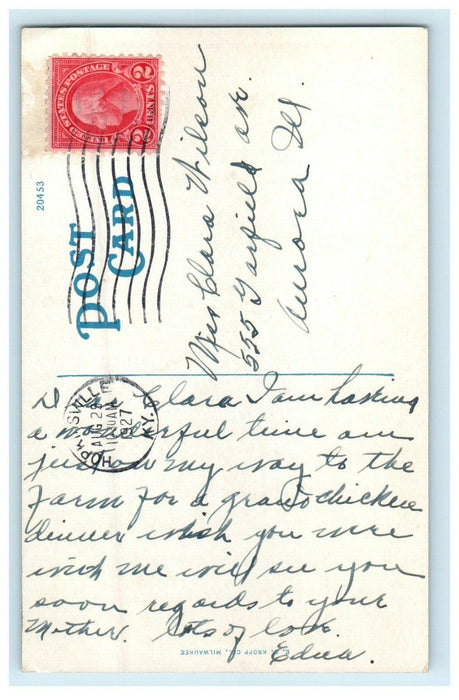 U.STATES POSTAGE
2 CENTS 2
20453
POST
CARD
HOPKINSVILLE
AUG 29
11 30 AM
1927
KY.
Miss Clara Wilson
555 Garfield av.
Aurora Ill.
Dear Clara I am having
a wonderful time am
just on my way to the
Farm for a grand chicken
dinner wish you were
with me will see you
soon regards to your
Mother. lots of love.
Edna.
E. C. KROPP CO., MILWAUKEE